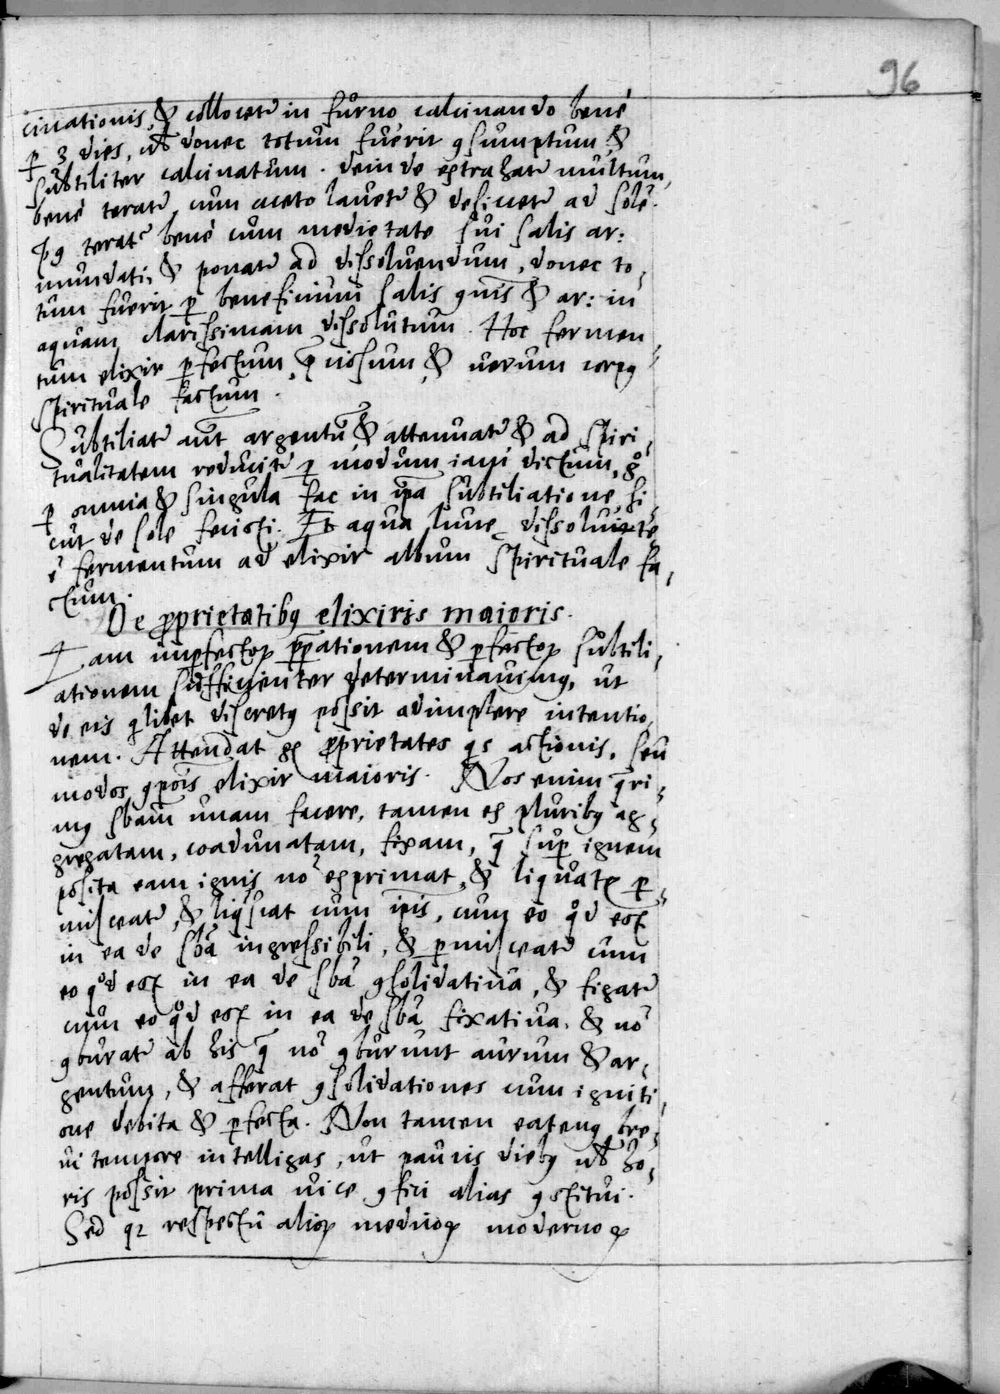 96
cinationis, & collocetr in furno calcinando bené
ꝑ 3 dies, ul̃ donec totum fuerit ꝯsumptum &
subtiliter calcinatum. deinde extrahatr multum,
bené teratr, cum aceto lavetr & desiccetr ad sole.
pꝯ teratr bené cum medietate sui salis ar:
mundati, & ponatr ad dissoluendum, donec to-
tum fuerit ꝑ beneficium salis &  ar: in
aquam clarissimam dissolutum. Hoc fermen-
tum elixir ꝑfectum, & uerum corpꝯ
spirituale factum.
Subtiliatr aut̃ argentũ & attenuatr & ad spiri-
tualitatem reducitr ꝑ modum iam dictum, gͦ
ꝑ omnia & singula fac in ip̃a subtiliatione, si-
cut de sole fecisti. Et aqua lunę dissolute
ẽ fermentum ad elixir album spirituale fa-
ctum.
De ꝓprietatibꝯ elixiris maioris.
Iam imꝑfectoꝝ p̃pationem & ꝑfectoꝝ subtili-
ationem sufficienter determinauimꝯ, ut
de eis qlibet discretꝯ possit adimplere intentio-
nem. Attendat gͦ ꝓprietates actionis, seu
modos ꝯpõis elixir maioris. Nos enim q̃ri-
mꝯ sbam̃ unam facere, tamen ex pluribꝯ ag-
gregatam, coadunatam, fixam, q̃ suꝑ ignem
posita eam ignis nõ exprimat, & liquatꝝ ꝑ-
misceatr, & liq̃scat cum ip̃is, cum eo qͦd est
in ea de sbã ingressibili, & ꝑmisceatr cum
eo qͦd est in ea de sbã ꝯsolidatiua, & figatr
cum eo qͦd est in ea de sbã fixatiua, & nõ
ꝯburatr ab his q̃ nõ ꝯburunt aurum & ar-
gentum, & afferat ꝯsolidationes cum igniti-
one debita & ꝑfecta. Non tamen eatenꝯ bre-
ui tempore intelligas, ut paucis diebꝯ ul̃ ho-
ris possit prima uice ꝯfici alias ꝯstitui.
Sed qꝫ respectũ alioꝝ medicoꝝ modernoꝝ